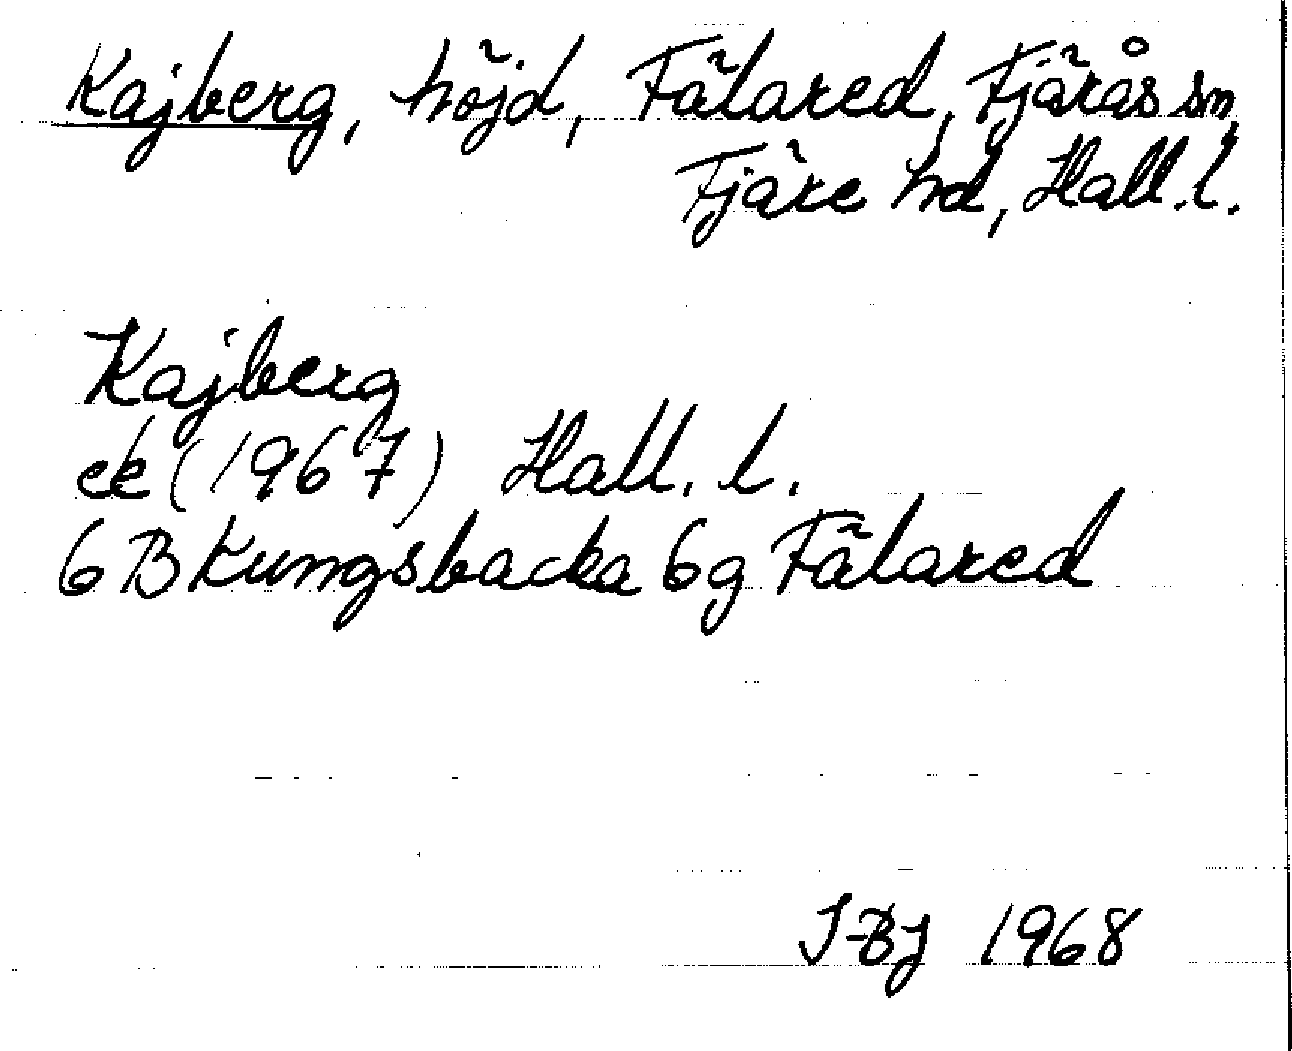 Kajberg, höjd, Fälared, Fjärås sn,
Fjäre hd, Hall.l.
Kajberg
ek (1967) Hall. l.
6 B Kungsbacka 6g Fälared
I-BJ 1968